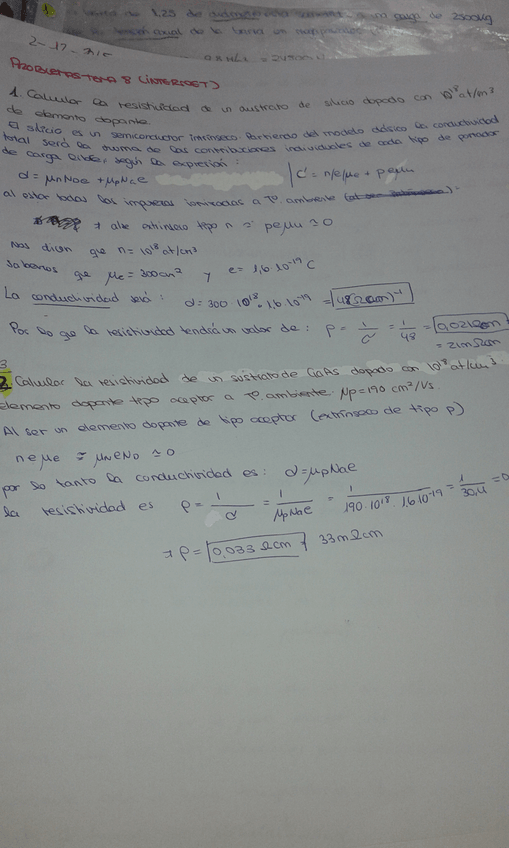 de 1.25 de
de 2500kg
anual de la
2-17-
PROBLEMAS TEMA 8 (INTERPOST)
1. Calcular la resistividad de un sustrato de silicio dopado con 10¹⁸ at/cm³
de elemento dopante.
El silicio es un semiconductor intrínseco. Partiendo del modelo clásico la conductividad
total será la suma de las contribuciones individuales de cada tipo de portador
de carga libre, según la expresión:
σ = μnNde + μpNae | σ = n/e/μe + peμh
al estar todas las impurezas ionizadas a Tª ambiente
extrínseco tipo n ⇒ peμh ≃ 0
Nos dicen que n = 10¹⁸ at/cm³
Sabemos que μe = 300cm² y e = 1,6 10⁻¹⁹ C
La conductividad será: σ = 300 · 10¹⁸ · 1,6 10⁻¹⁹ = 48(Ωcm)⁻¹
Por lo que la resistividad tendrá un valor de: ρ = 1/σ = 1/48 = 0,021Ωcm
= 21mΩcm
3
2. Calcular la resistividad de un sustrato de GaAs dopado con 10¹⁸ at/cm³
elemento dopante tipo aceptor a Tª ambiente. μp = 190 cm²/Vs
Al ser un elemento dopante de tipo aceptor (extrínseco de tipo p)
neμe = μNeND ≃ 0
por lo tanto la conductividad es: σ = μpNae
la resistividad es ρ = 1/σ = 1/μpNae = 1/190·10¹⁸·1,6 10⁻¹⁹ = 1/30,4 = 0
→ ρ = 0,033 Ωcm 33mΩcm